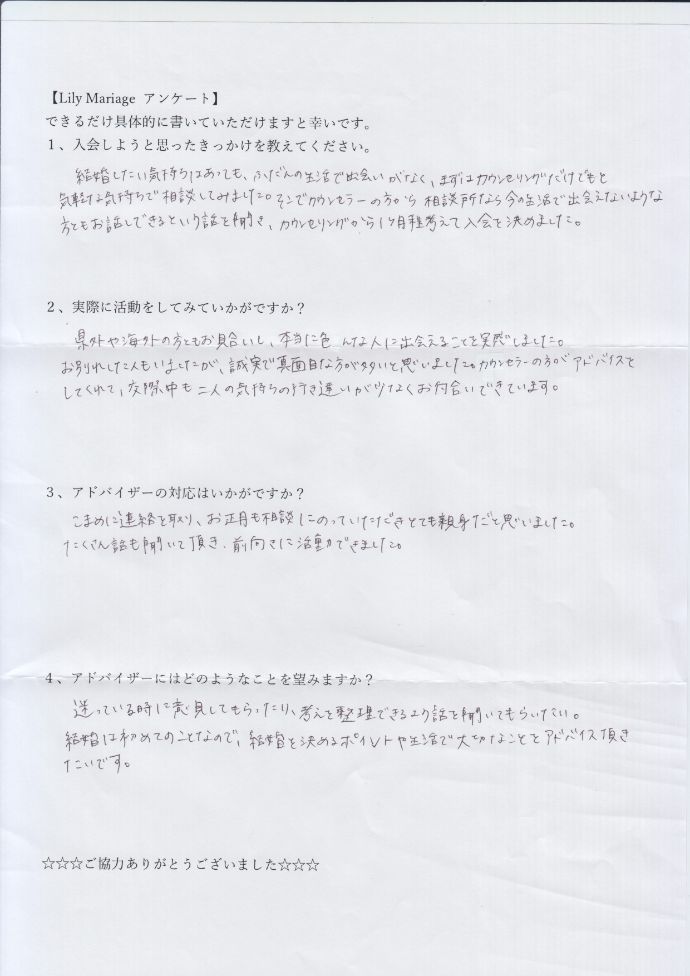 【Lily Mariage アンケート】
できるだけ具体的に書いていただけますと幸いです。
１、入会しようと思ったきっかけを教えてください。
結婚したい気持ちはあっても、ふだんの生活で出会いがなく、まずはカウンセリングだけでもと
気軽な気持ちで相談してみました。そこでカウンセラーの方から相談所なら今の生活で出会えないような
方ともお話しできるという話を聞き、カウンセリングから1ヶ月程考えて入会を決めました。
２、実際に活動をしてみていかがですか？
県外や海外の方ともお見合いし、本当に色んな人に出会えることを実感しました。
お別れした人もいましたが、誠実で真面目な方が多いと思いました。カウンセラーの方がアドバイスを
してくれて、交際中も二人の気持ちの行き違いが少なくお付合いできています。
３、アドバイザーの対応はいかがですか？
こまめに連絡を取り、お正月も相談にのっていただきとても親身だと思いました。
たくさん話も聞いて頂き、前向きに活動できました。
４、アドバイザーにはどのようなことを望みますか？
迷っている時に意見してもらったり、考えを整理できるよう話を聞いてもらいたい。
結婚は初めてのことなので、結婚を決めるポイントや生活で大切なことをアドバイス頂き
たいです。
☆☆☆ご協力ありがとうございました☆☆☆